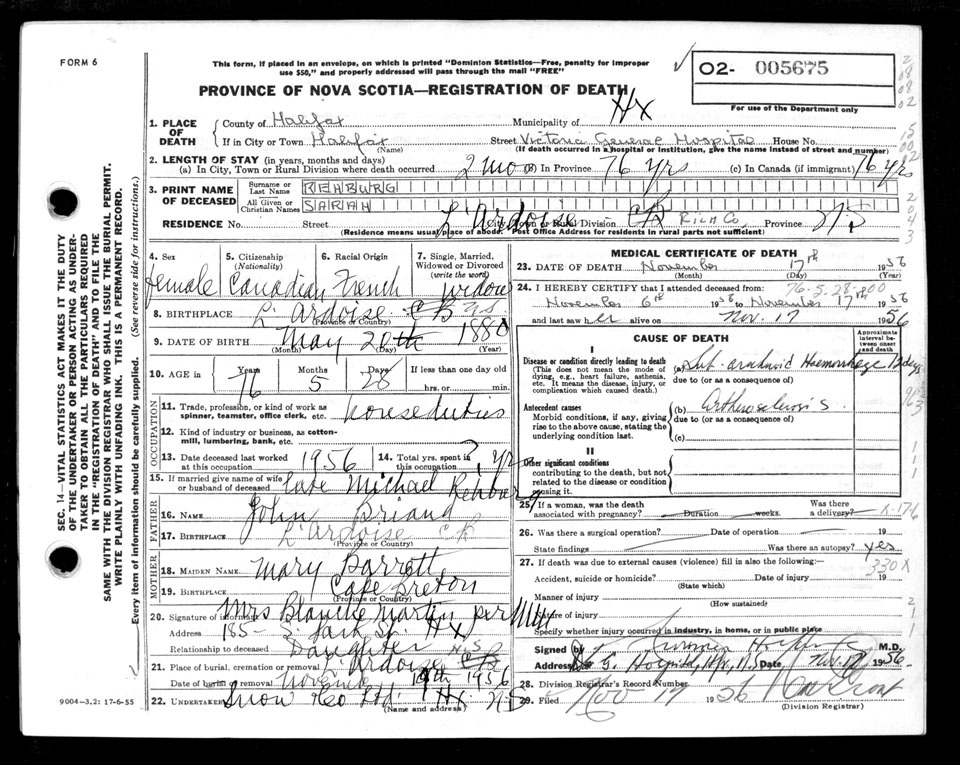 FORM 6
This form, if placed in an envelope, on which is printed "Dominion Statistics—Free, penalty for improper
use $50," and properly addressed will pass through the mail "FREE"
PROVINCE OF NOVA SCOTIA—REGISTRATION OF DEATH
Hx
02- 005675
For use of the Department only
1. PLACE OF DEATH
County of Halifax Municipality of
If in City or Town Halifax Street Victoria General Hospital House No.
(Name) (If death occurred in a hospital or institution, give the name instead of street and number)
2. LENGTH OF STAY (in years, months and days)
(a) In City, Town or Rural Division where death occurred 2 mo (b) In Province 76 yrs (c) In Canada (if immigrant) 76 yrs
3. PRINT NAME OF DECEASED
Surname or Last Name REHBURG
All Given or Christian Names SARAH
RESIDENCE No. Street L'Ardoise City, Town or Rural Division CB Rich Co Province N.S
(Residence means usual place of abode. Post Office Address for residents in rural parts not sufficient)
4. Sex female
5. Citizenship (Nationality) Canadian
6. Racial Origin French
7. Single, Married, Widowed or Divorced (write the word) widow
8. BIRTHPLACE L'Ardoise CB
(Province or Country)
9. DATE OF BIRTH May 20th 1880
(Month) (Day) (Year)
10. AGE in Years 76 Months 5 Days 28 If less than one day old hrs. or min.
OCCUPATION
11. Trade, profession, or kind of work as spinner, teamster, office clerk, etc. house duties
12. Kind of industry or business, as cotton-mill, lumbering, bank, etc.
13. Date deceased last worked at this occupation 1956
14. Total yrs. spent in this occupation ? yrs
15. If married give name of wife or husband of deceased late Michael Rehburg
FATHER
16. NAME John Briand
17. BIRTHPLACE L'Ardoise CB
(Province or Country)
MOTHER
18. MAIDEN NAME Mary Barrett
19. BIRTHPLACE Cape Breton
(Province or Country)
20. Signature of informant Mrs Blanche Martin per
Address 185 Park St. Hx
Relationship to deceased Daughter
21. Place of burial, cremation or removal L'Ardoise CB N.S
Date of burial or removal November 19th 1956
22. UNDERTAKER Snow & Co Ltd. Hx N.S
(Name and address)
MEDICAL CERTIFICATE OF DEATH
23. DATE OF DEATH November 17th 1956
(Month) (Day) (Year)
24. I HEREBY CERTIFY that I attended deceased from: 76-5-28-00
November 6th 1956 to November 17th 1956
and last saw her alive on Nov. 17 1956
CAUSE OF DEATH
Approximate interval between onset and death
I
Disease or condition directly leading to death
(This does not mean the mode of dying, e.g., heart failure, asthenia, etc. It means the disease, injury, or complication which caused death.)
(a) Sub-arachnoid Haemorrhage 12 days
due to (or as a consequence of)
Antecedent causes
Morbid conditions, if any, giving rise to the above cause, stating the underlying condition last.
(b) Artherosclerosis
due to (or as a consequence of)
(c)
II
Other significant conditions
contributing to the death, but not related to the disease or condition causing it.
25. If a woman, was the death associated with pregnancy? Duration weeks. Was there a delivery?
26. Was there a surgical operation? Date of operation 19
State findings Was there an autopsy? yes
27. If death was due to external causes (violence) fill in also the following: 330X
Accident, suicide or homicide? Date of injury 19
(State which)
Manner of injury
(How sustained)
Nature of injury
Specify whether injury occurred in industry, in home, or in public place
Signed by M.D.
Address V. G. Hospital, Hfx, N.S. Date Nov. 17 1956
28. Division Registrar's Record Number
29. Filed Nov 19 1956
(Division Registrar)
SEC. 14—VITAL STATISTICS ACT MAKES IT THE DUTY
OF THE UNDERTAKER OR PERSON ACTING AS UNDER-
TAKER TO OBTAIN ALL THE PARTICULARS REQUIRED
IN THE "REGISTRATION OF DEATH" AND TO FILE THE
SAME WITH THE DIVISION REGISTRAR WHO SHALL ISSUE THE BURIAL PERMIT.
WRITE PLAINLY WITH UNFADING INK. THIS IS A PERMANENT RECORD.
Every item of information should be carefully supplied. (See reverse side for instructions.)
9004—3.2: 17-6-55